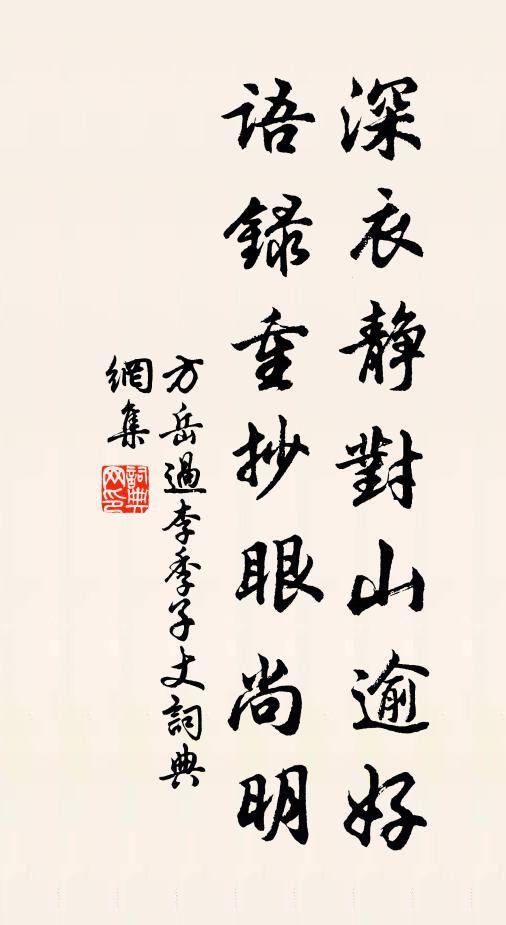 深衣静對山逾好
語録重抄眼尚明
方岳過李季子丈詞典
網集
詞典網印